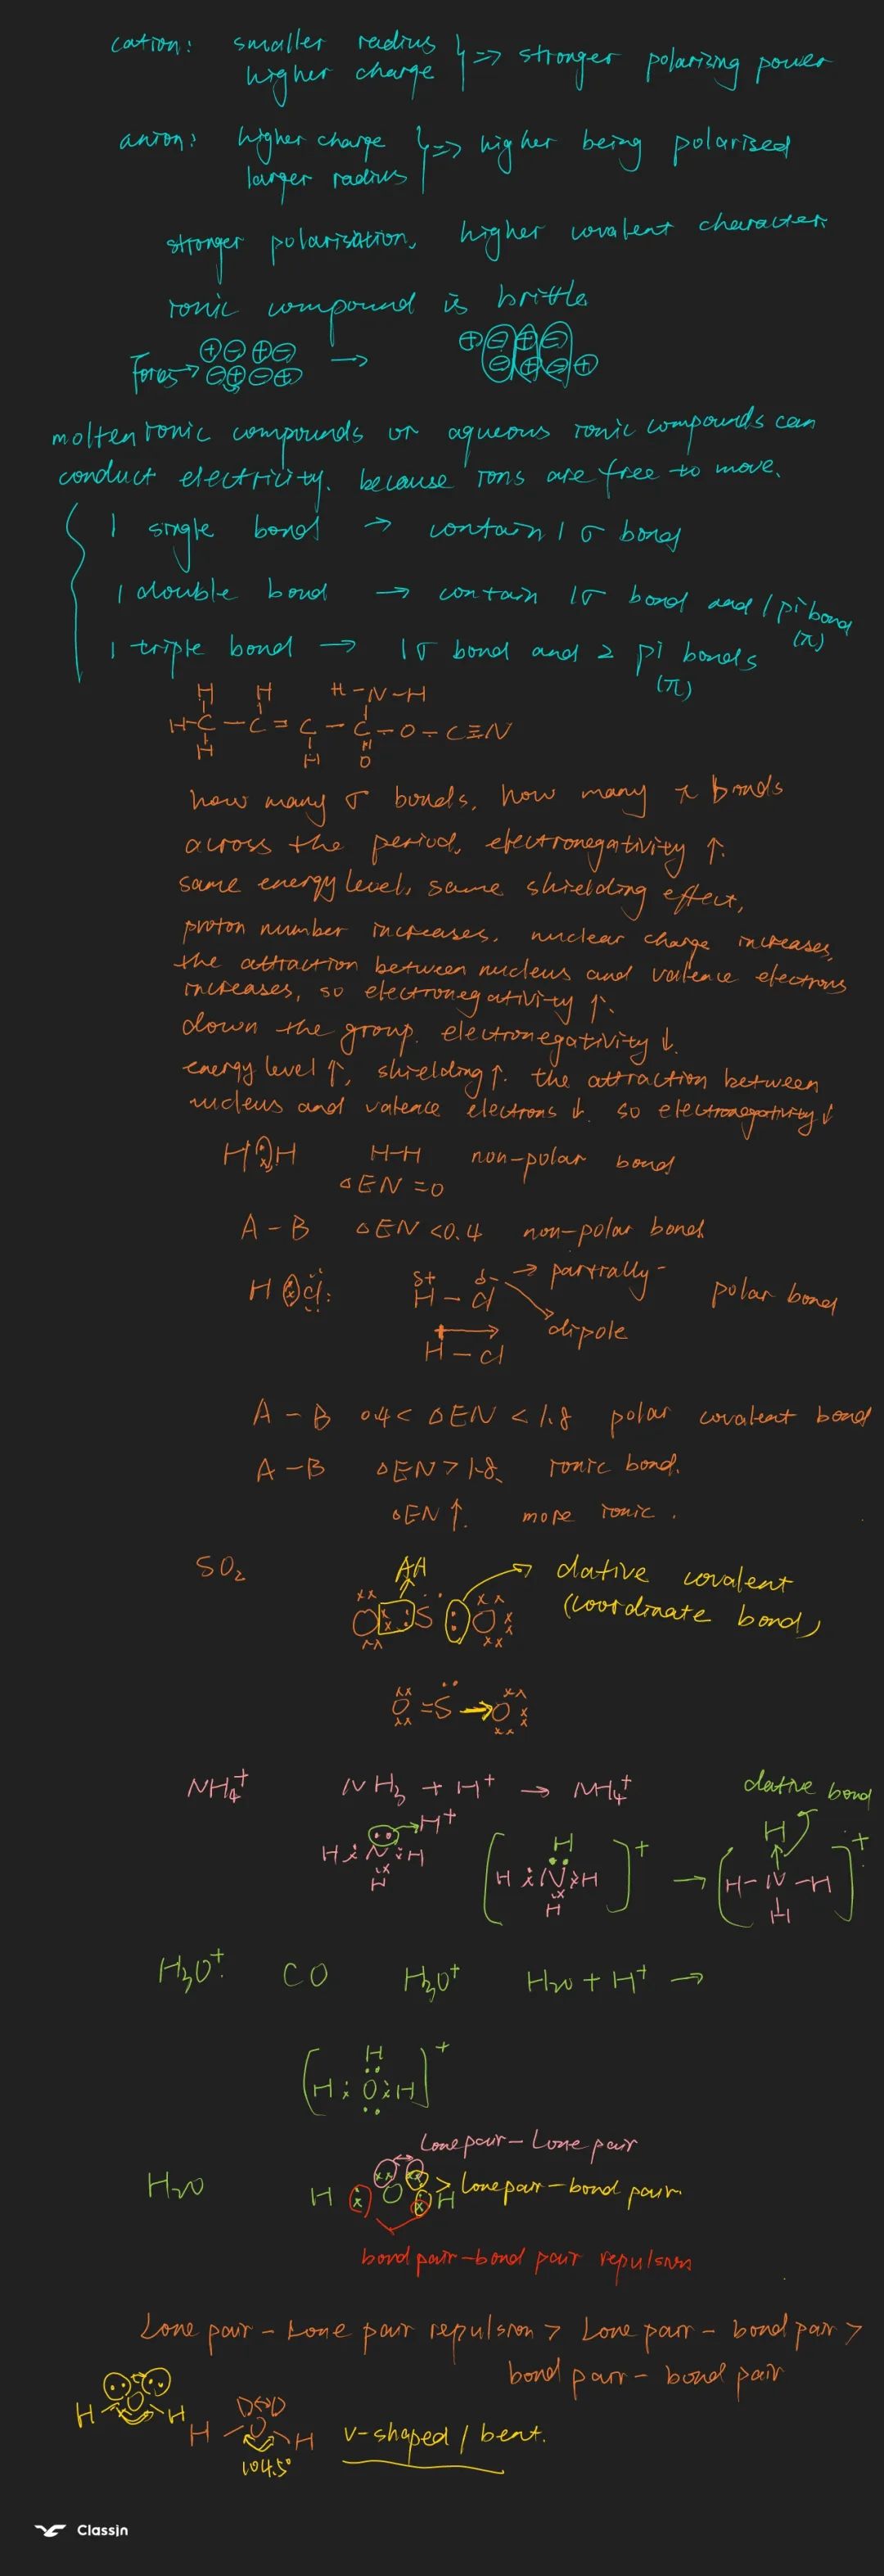 cation: smaller radius
higher charge } => stronger polarizing power
anion: higher charge
larger radius } => higher being polarised
stronger polarisation, higher covalent character.
ionic compound is brittle
Force → ⊕⊖⊕⊖ → ⊕⊖⊕⊖
⊖⊕⊖⊕ ⊖⊕⊖⊕
molten ionic compounds or aqueous ionic compounds can
conduct electricity. because ions are free to move.
1 single bond → contain 1 σ bond
1 double bond → contain 1σ bond and 1 pi bond
(π)
1 triple bond → 1σ bond and 2 pi bonds
(π)
H H H-N-H
H-C-C=C-C-O-C≡N
H H O
how many σ bonds, how many π bonds
across the period, electronegativity ↑.
same energy level, same shielding effect,
proton number increases. nuclear charge increases,
the attraction between nucleus and valence electrons
increases, so electronegativity ↑.
down the group. electronegativity ↓.
energy level ↑, shielding ↑. the attraction between
nucleus and valence electrons ↓. so electronegativity ↓
H H H-H non-polar bond
ΔEN =0
A-B ΔEN <0.4 non-polar bond
H Cl δ+ δ- → partially -
H-Cl polar bond
dipole
H-Cl
A-B 0.4 < ΔEN < 1.8 polar covalent bond
A-B ΔEN > 1.8 ionic bond.
ΔEN ↑. more ionic.
SO2 → dative covalent
O S O (coordinate bond)
O=S→O
NH4+ NH3 + H+ → NH4+ dative bond
H+ H H
H N H [H N H]+ → [H-N-H]+
H H H
H3O+. CO H3O+ H2O + H+ →
H
[H O H]+
Lone pair - Lone pair
H2O H O H > lone pair - bond pair.
bond pair - bond pair repulsion
Lone pair - Lone pair repulsion > Lone pair - bond pair >
bond pair - bond pair
H O H
H O H v-shaped / bent.
104.5°
ClassIn